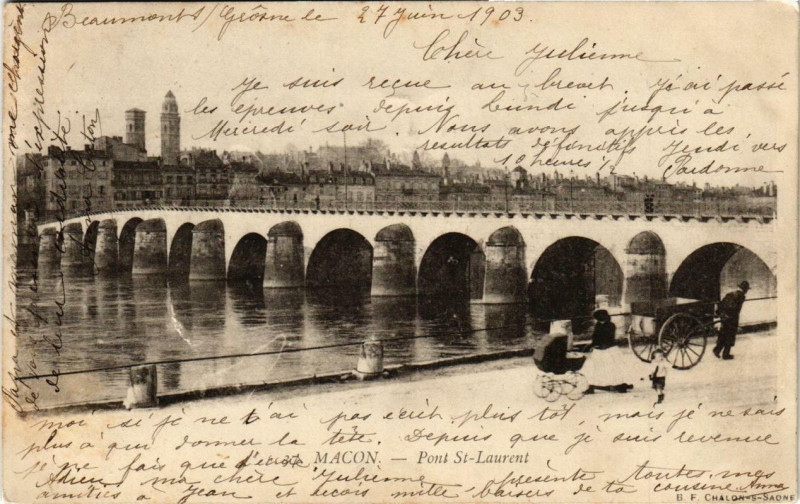 Beaumont s/ Grosne le 27 Juin 1903.
Chère Julienne
Je suis reçue au brevet. J'ai passé
les épreuves depuis Lundi jusqu'à
Mercredi soir. Nous avons appris les
résultats définitifs Jeudi vers
10 heures 1/2 Pardonne
moi si je ne t'ai pas écrit plus tôt, mais je ne sais
plus à qui donner la tête. Depuis que je suis revenue
je ne fais que d'écrire
37. MACON. — Pont St-Laurent
Adieu, ma chère Julienne présente toutes mes
amitiés à Jean et reçois mille baisers de ta cousine Anna
B. F. CHALON-S-SAONE
Papa et maman me chargent
de
de leur cordiale
l'expression